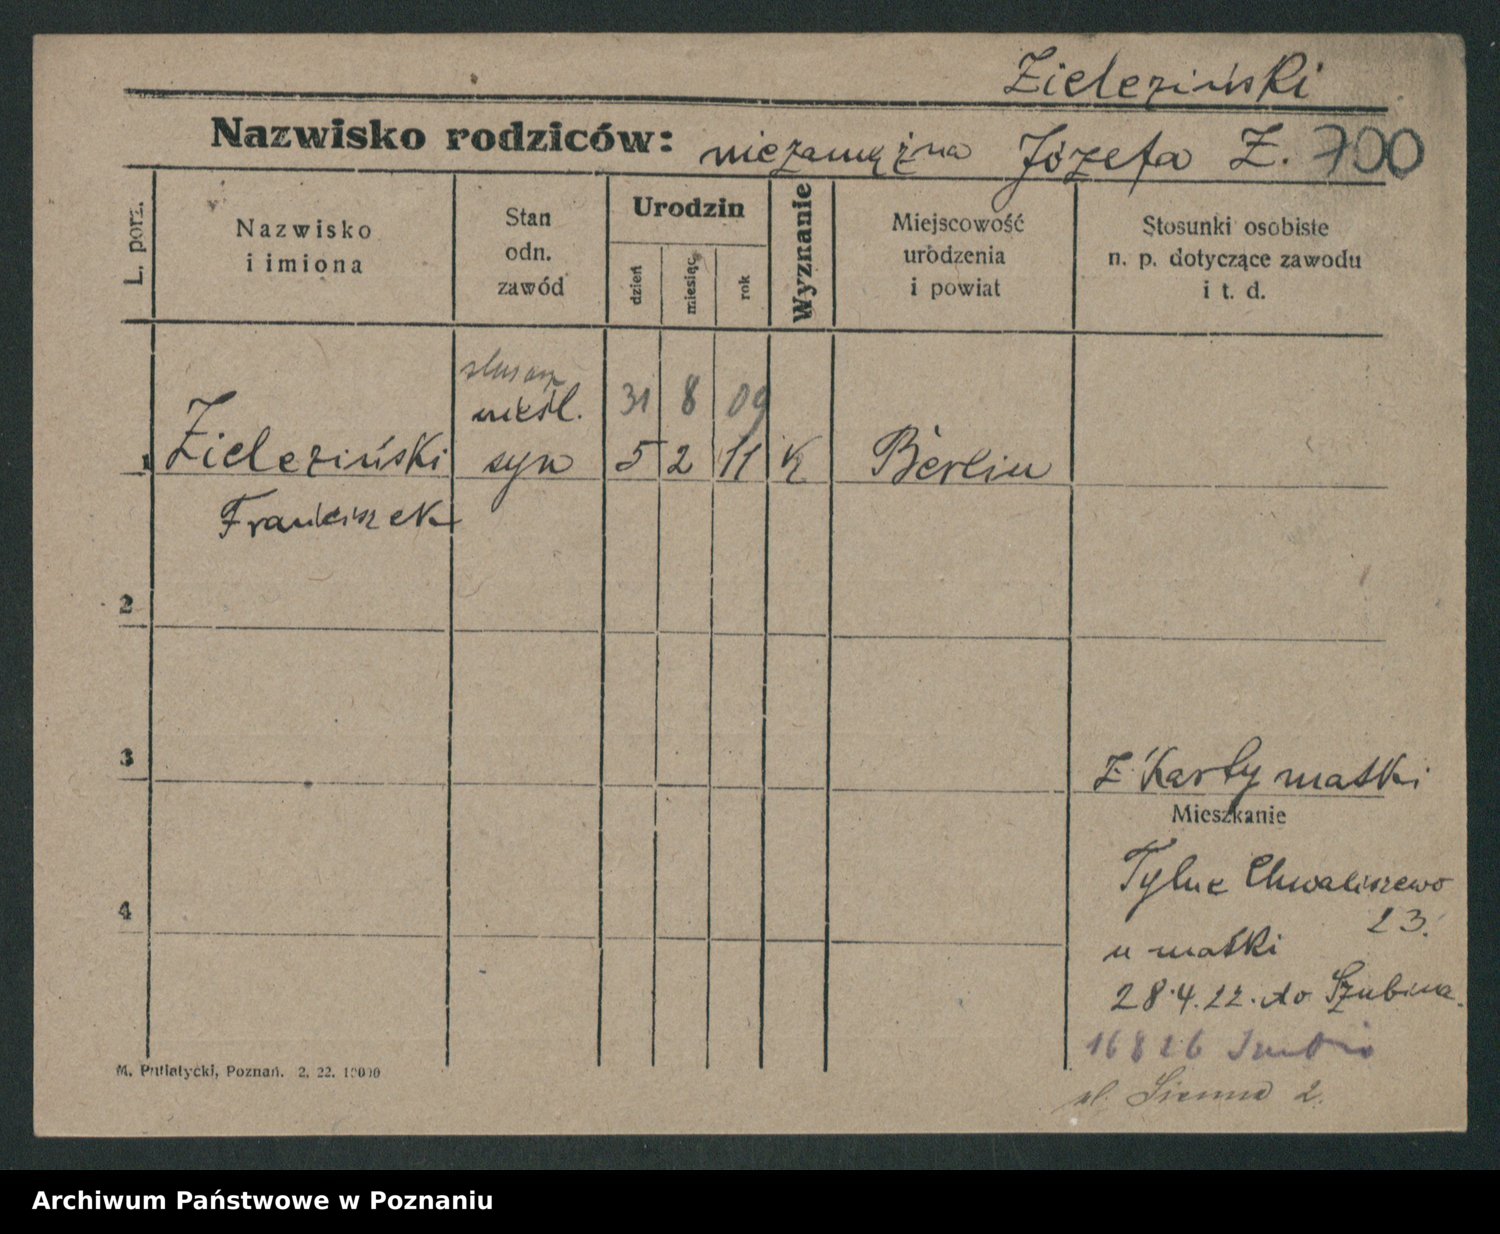 Zieleziński
Nazwisko rodziców: niezamężna Józefa Z. 700
L. porz.
Nazwisko
i imiona
Stan
odn.
zawód
Urodzin
dzień
miesiąc
rok
Wyznanie
Miejscowość
urodzenia
i powiat
Stosunki osobiste
n. p. dotyczące zawodu
i t. d.
nieśl. 31 8 09
1 Zieleziński syn 5 2 11 K Berlin
Franciszek
2
3
Z Karty matki
Mieszkanie
Tylne Chwaliszewo
23.
4
u matki
28.4.22. do Szubina.
16 8 26
ul. Sienna 2.
M. Putiatycki, Poznań. 2. 22. 10000
Archiwum Państwowe w Poznaniu